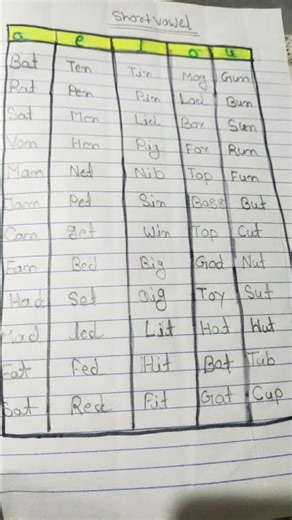 Short vowel
a e i o u
Bat Ten Tin Mog Gum
Rat Pen Pin Lod Bun
Sat Men Lid Box Sun
Vam Hen Pig Fox Run
Mam Net Nib Top Fun
Pet Sin Boss But
get Win Top Cut
Bed Big God Nut
Had Set Dig Toy Sut
Mad Led Lit Hot Hut
Eat Fed Hit Bot Tub
Sat Red Fit Got Cup